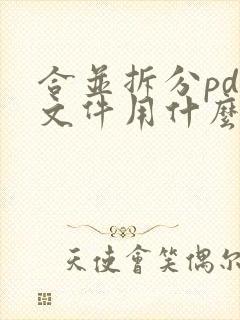 合並拆分pd
文件用什麼
天使會笑偶尔